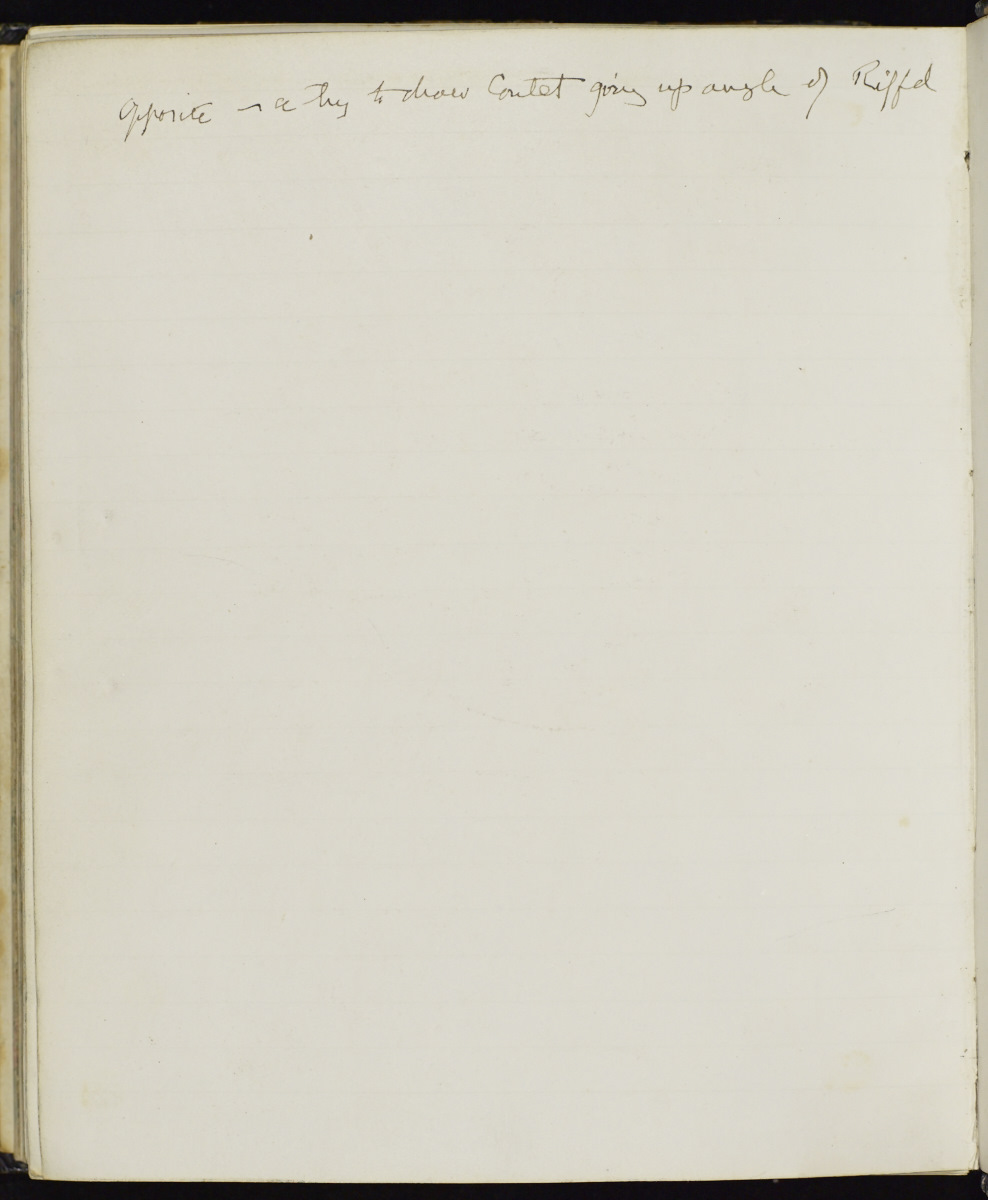 Opposite – a try to draw Coutet going up angle of Riffel